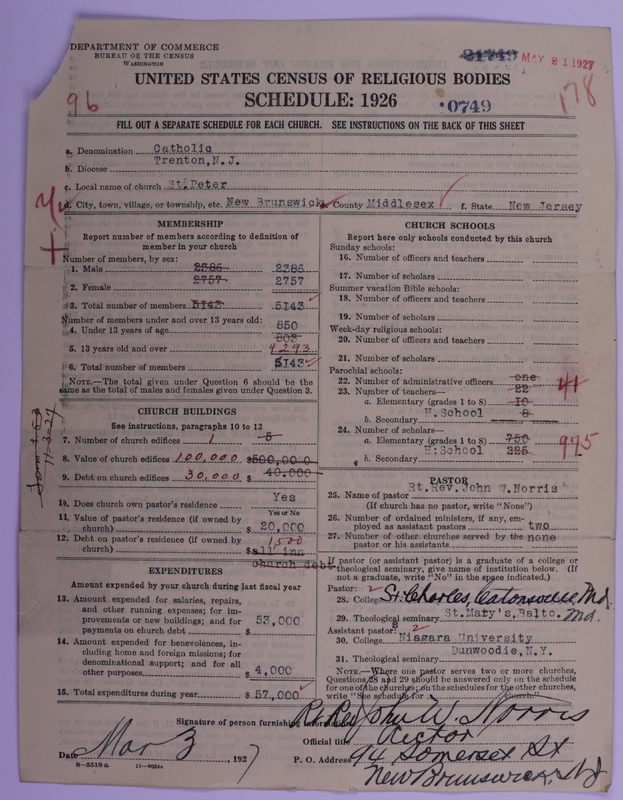 DEPARTMENT OF COMMERCE
BUREAU OF THE CENSUS
WASHINGTON
21749 MAY 21 1927
UNITED STATES CENSUS OF RELIGIOUS BODIES
96 SCHEDULE: 1926 0749 178
FILL OUT A SEPARATE SCHEDULE FOR EACH CHURCH. SEE INSTRUCTIONS ON THE BACK OF THIS SHEET
a. Denomination Catholic
b. Diocese Trenton, N.J.
c. Local name of church St. Peter
d. City, town, village, or township, etc. New Brunswick e. County Middlesex f. State New Jersey
MEMBERSHIP
Report number of members according to definition of
member in your church
Number of members, by sex:
1. Male 2386 2386
2. Female 2757 2757
3. Total number of members 5143 5143
Number of members under and over 13 years old:
4. Under 13 years of age 850
803
5. 13 years old and over 4293
6. Total number of members 5143
NOTE.—The total given under Question 6 should be the
same as the total of males and females given under Question 3.
CHURCH BUILDINGS
See instructions, paragraphs 10 to 12
7. Number of church edifices 1 5
8. Value of church edifices 100,000 $500,000
9. Debt on church edifices 30,000 $ 40,000
10. Does church own pastor's residence Yes
Yes or No
11. Value of pastor's residence (if owned by
church) $ 20,000
12. Debt on pastor's residence (if owned by 1,500
church) $ all inn
church debt
EXPENDITURES
Amount expended by your church during last fiscal year
13. Amount expended for salaries, repairs,
and other running expenses; for im-
provements or new buildings; and for
payments on church debt $ 53,000
14. Amount expended for benevolences, in-
cluding home and foreign missions; for
denominational support; and for all
other purposes $ 4,000
15. Total expenditures during year $ 57,000
CHURCH SCHOOLS
Report here only schools conducted by this church
Sunday schools:
16. Number of officers and teachers
17. Number of scholars
Summer vacation Bible schools:
18. Number of officers and teachers
19. Number of scholars
Week-day religious schools:
20. Number of officers and teachers
21. Number of scholars
Parochial schools:
22. Number of administrative officers one
23. Number of teachers— 22 41
a. Elementary (grades 1 to 8) 10
b. Secondary H.School 8
24. Number of scholars—
a. Elementary (grades 1 to 8) 750 975
b. Secondary H:School 225
PASTOR
25. Name of pastor Rt.Rev.John W.Norris
(If church has no pastor, write "None")
26. Number of ordained ministers, if any, em-
ployed as assistant pastors two
27. Number of other churches served by the none
pastor or his assistants
If pastor (or assistant pastor) is a graduate of a college or
theological seminary, give name of institution below. (If
not a graduate, write "No" in the space indicated.)
Pastor:
28. College St. Charles, Catonsville Md.
29. Theological seminary St.Mary's,Balto. Md.
Assistant pastor: 2
30. College Niagara University
31. Theological seminary Dunwoodie,N.Y.
NOTE.—Where one pastor serves two or more churches,
Questions 28 and 29 should be answered only on the schedule
for one of the churches; on the schedules for the other churches,
write "See schedule for church."
Signature of person furnishing information R. Rev John W. Norris
Official title Rector
Date Mar 3, 1927 P. O. Address 94 Somerset St
8—5518a New Brunswick, NJ